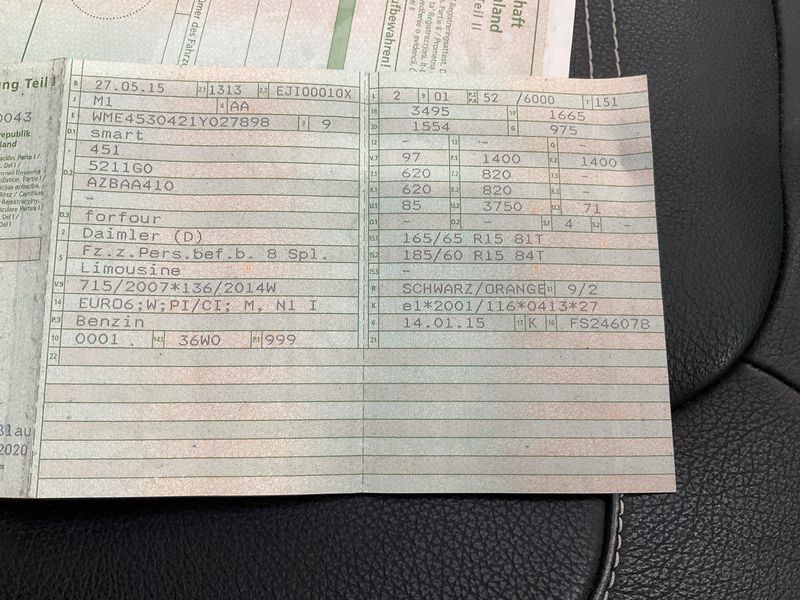 chaft
nland
Teil II
ufbewahren!
ng Teil I
0043
epublik
land
B 27.05.15 2.1 1313 2.2 EJI00010X
J M1 4 AA
E WME4530421Y027898 3 9
D.1 smart
451
D.2 5211G0
AZBAA410
–
D.3 forfour
2 Daimler (D)
5 Fz.z.Pers.bef.b. 8 Spl.
Limousine
V.9 715/2007*136/2014W
14 EURO6;W;PI/CI; M, N1 I
P.3 Benzin
10 0001 . 14.1 36W0 P.1 999
22
L 2 9 01 P.2 P.4 52 /6000 T 151
18 3495 19 1665
20 1554 G 975
12 – 13 – Q –
V.7 97 F.1 1400 F.2 1400
7.1 620 7.2 820 7.3 –
8.1 620 8.2 820 8.3 –
U.1 85 U.2 3750 U.3 71
O.1 – O.2 – S.1 4 S.2 –
15.1 165/65 R15 81T
15.2 185/60 R15 84T
15.3 –
R SCHWARZ/ORANGE 11 9/2
K e1*2001/116*0413*27
6 14.01.15 17 K 16 FS246078
21
ßlau
2020